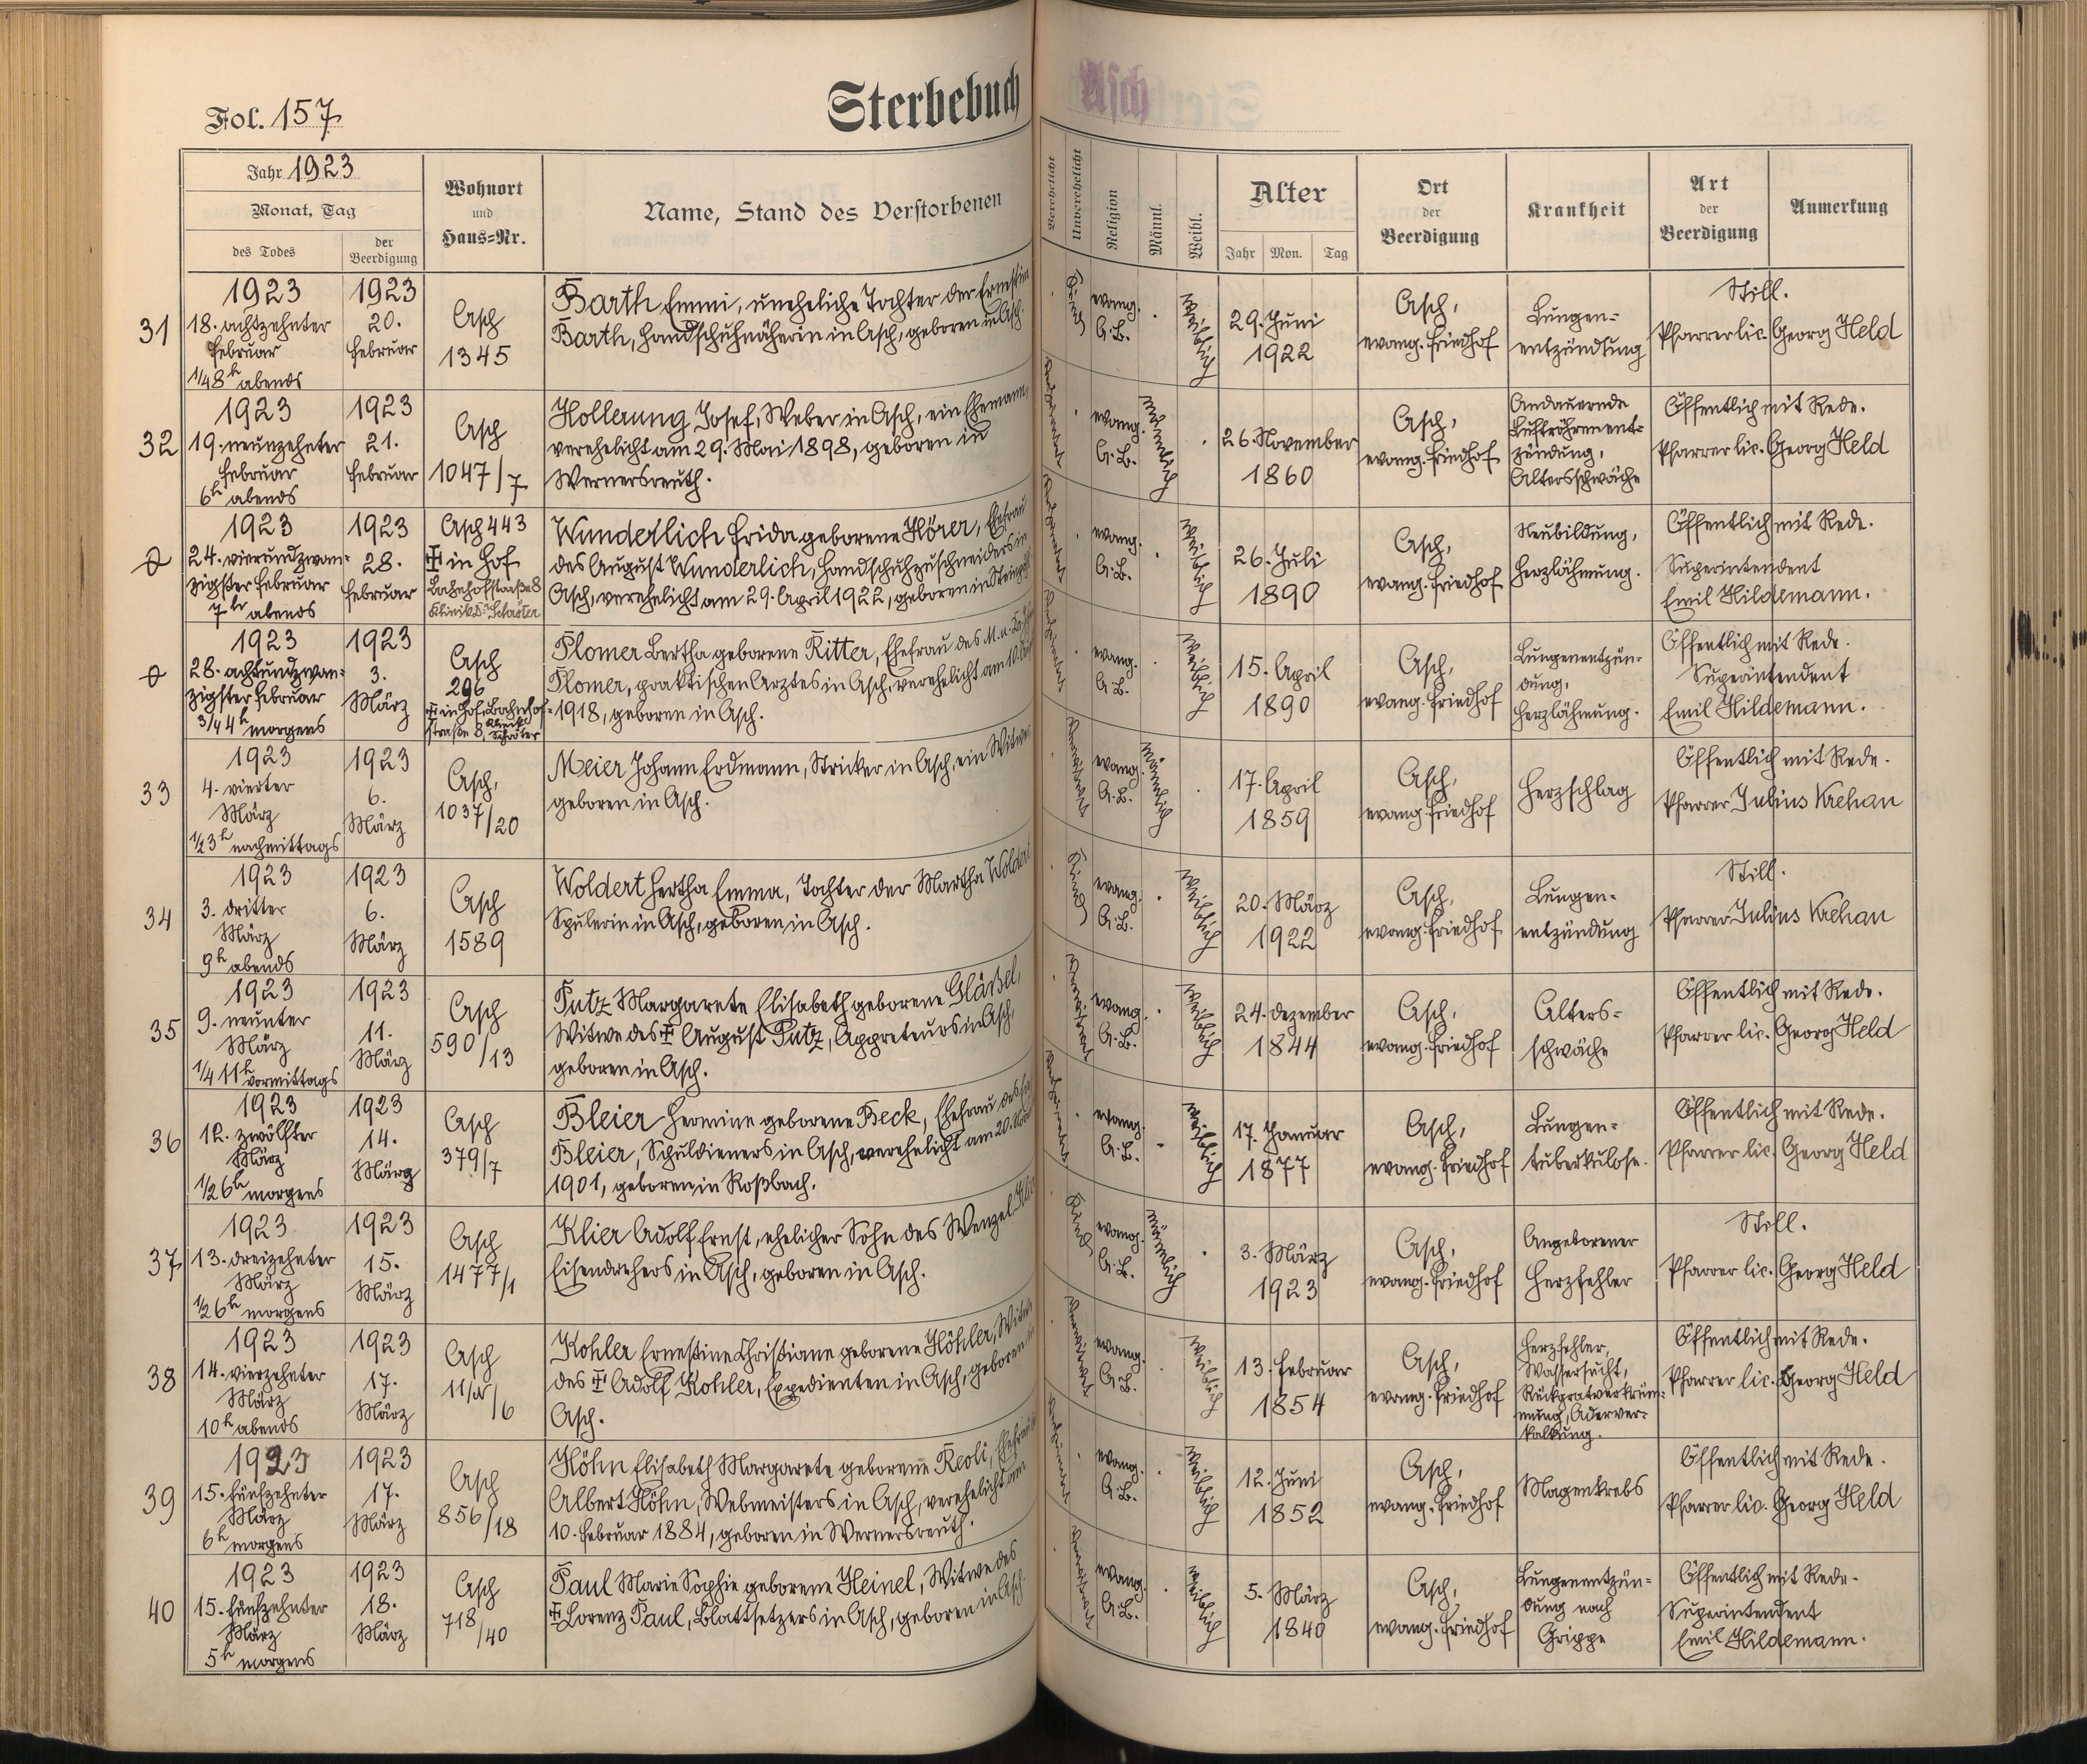 Fol. 157
Sterbebuch
Asch
Jahr 1923
Monat, Tag
des Todes
der
Beerdigung
Wohnort
und
Haus=Nr.
Name, Stand des Verstorbenen
Verehelicht
Unverehelicht
Religion
Männl.
Weibl.
Alter
Jahr Mon. Tag
Ort
der
Beerdigung
Krankheit
Art
der
Beerdigung
Anmerkung
31
1923
18. achtzehnter
Februar
1/48 h abends
1923
20.
Februar
Asch
1345
Barth Emmi, uneheliche Tochter der
Barth, Handschuhnäherin in Asch, geboren in Asch.
Kind
evang.
A.B.
weiblich
29. Juni
1922
Asch,
evang. Friedhof
Lungen=
entzündung
Still.
Pfarrer lic. Georg Held
32
1923
19. neunzehnter
Februar
6 h abends
1923
21.
Februar
Asch
1047/7
Hollerung Josef, Weber in Asch, ein Ehemann,
verehelicht am 29. Mai 1898, geboren in
Wernersreuth.
evang.
A.B.
männlich
26. November
1860
Asch,
evang. Friedhof
Andauernde
Luftröhrenent=
zündung,
Altersschwäche
Öffentlich mit Rede.
Pfarrer lic. Georg Held
1923
24. vierundzwan=
zigster Februar
7 h abends
1923
28.
Februar
Asch 443
‡ in Hof
Bahnhofstraße 8
Klinik Dr.
Wunderlich Frida geborene Hörer, Ehefrau
des August Wunderlich, Handschuhzuschneiders in
Asch, verehelicht am 29. April 1922, geboren in
evang.
A.B.
weiblich
26. Juli
1890
Asch,
evang. Friedhof
Neubildung,
Herzlähmung.
Öffentlich mit Rede.
Superintendent
Emil Hildemann.
1923
28. achtundzwan=
zigster Februar
3/44 h morgens
1923
3.
März
Asch
296
‡ in Hof, Bahnhof=
straße 8, Klinik
Plomer Bertha geborene Ritter, Ehefrau des
Plomer, praktischen Arztes in Asch, verehelicht am 10.
1918, geboren in Asch.
evang.
A.B.
weiblich
15. April
1890
Asch,
evang. Friedhof
Lungenentzün=
dung,
Herzlähmung.
Öffentlich mit Rede.
Superintendent
Emil Hildemann.
33
1923
4. vierter
März
1/23 h nachmittags
1923
6.
März
Asch,
1037/20
Meier Johann Erdmann, Stricker in Asch, ein Witwer
geboren in Asch.
evang.
A.B.
männlich
17. April
1859
Asch,
evang. Friedhof
Herzschlag
Öffentlich mit Rede.
Pfarrer Julius Krehan
34
1923
3. dritter
März
9 h abends
1923
6.
März
Asch
1589
Woldert Hertha Emma, Tochter der Martha Woldert
Spulerin in Asch, geboren in Asch.
Kind
evang.
A.B.
weiblich
20. März
1922
Asch,
evang. Friedhof
Lungen=
entzündung
Still.
Pfarrer Julius Krehan
35
1923
9. neunter
März
1/4 11 h vormittags
1923
11.
März
Asch
590/13
Putz Margarete Elisabeth geborene Gläßel,
Witwe des ‡ August Putz, Appreteurs in Asch,
geboren in Asch.
evang.
A.B.
weiblich
24. Dezember
1844
Asch,
evang. Friedhof
Alters=
schwäche
Öffentlich mit Rede.
Pfarrer lic. Georg Held
36
1923
12. zwölfter
März
1/26 h morgens
1923
14.
März
Asch
379/7
Bleier Hermine geborene Beck, Ehefrau des
Bleier, Schuldieners in Asch, verehelicht am 20.
1901, geboren in Roßbach.
evang.
A.B.
weiblich
17. Januar
1877
Asch,
evang. Friedhof
Lungen=
tuberkulose.
Öffentlich mit Rede.
Pfarrer lic. Georg Held
37
1923
13. dreizehnter
März
1/26 h morgens
1923
15.
März
Asch
1477/1
Klier Adolf Ernst, ehelicher Sohn des Wenzel Klier
Eisendrehers in Asch, geboren in Asch.
Kind
evang.
A.B.
männlich
3. März
1923
Asch,
evang. Friedhof
Angeborener
Herzfehler
Still.
Pfarrer lic. Georg Held
38
1923
14. vierzehnter
März
10 h abends
1923
17.
März
Asch
Kohler Ernestine Christiane geborene Höhler, Witwe
des ‡ Adolf Kohler, Expedienten in Asch, geboren in
Asch.
evang.
A.B.
weiblich
13. Februar
1854
Asch,
evang. Friedhof
Herzfehler,
Wassersucht,
Rückgratverkrüm=
mung, Aderver=
kalkung.
Öffentlich mit Rede.
Pfarrer lic. Georg Held
39
1923
15. fünfzehnter
März
6 h morgens
1923
17.
März
Asch
856/18
Höhn Elisabeth Margarete geborene Ehefrau
Albert Höhn, Webmeisters in Asch, verehelicht am
10. Februar 1884, geboren in Wernersreuth.
evang.
A.B.
weiblich
12. Juni
1852
Asch,
evang. Friedhof
Magenkrebs
Öffentlich mit Rede.
Pfarrer lic. Georg Held
40
1923
15. fünfzehnter
März
5 h morgens
1923
18.
März
Asch
718/40
Paul Marie Sophie geborene Heinel, Witwe des
‡ Lorenz Paul, Blattsetzers in Asch, geboren in Asch.
evang.
A.B.
weiblich
5. März
1840
Asch,
evang. Friedhof
Lungenentzün=
dung nach
Grippe
Öffentlich mit Rede.
Superintendent
Emil Hildemann.